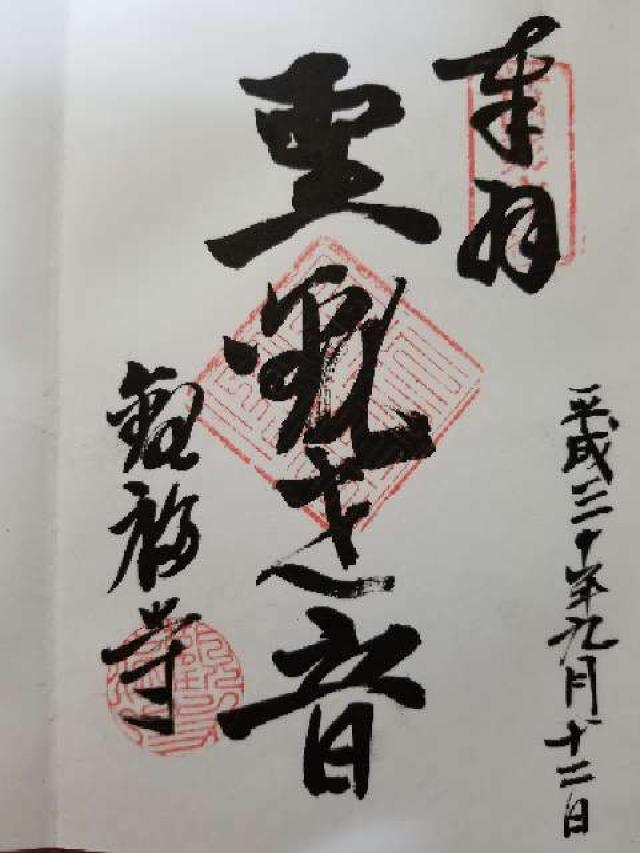 奉拝
平成三十年九月十二日
聖観世音
観福寺